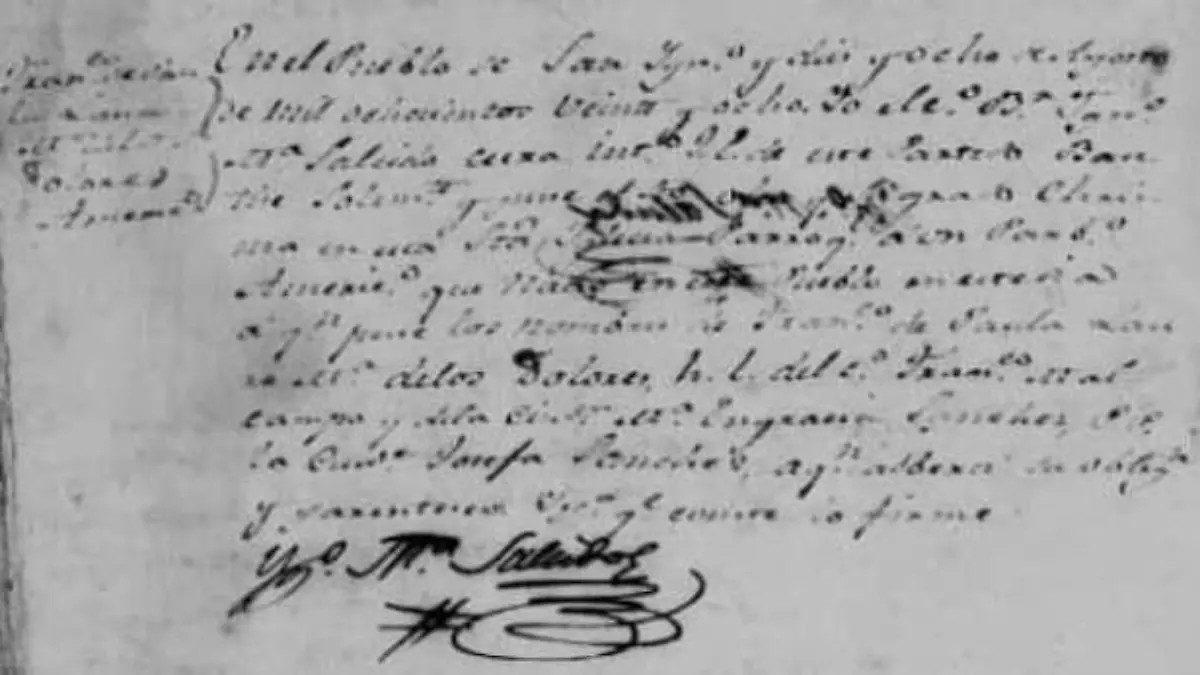 Fran.co de Pau
la Laur
M.a de los
Dolores
Americ.o
En el Pueblo de San Ygn.o y dies y ocho de Agosto
de mil ochocientos veinte y ocho. Yo el c.o B.r Ygn.o
M.a Salcido cura int.o de este Partido Bau
tise Solem.te y puse y Sagrado Chris
ma en esta Sta Yglecia Parroq.l a un Parb.o
Americ.o que nacio en este Pueblo en este dia
a q.n puse los nombres de Fran.co de Paula Lau
M.a de los Dolores, h. l. del c.o Fran.co Mal
campo y de la Ciud.a M.a Engracia Sanches,
la Ciud.a Josefa Sanches, a q.n adberti su oblig.n
y parentesco q.e conste lo firme
Yg.o M.a Salcido